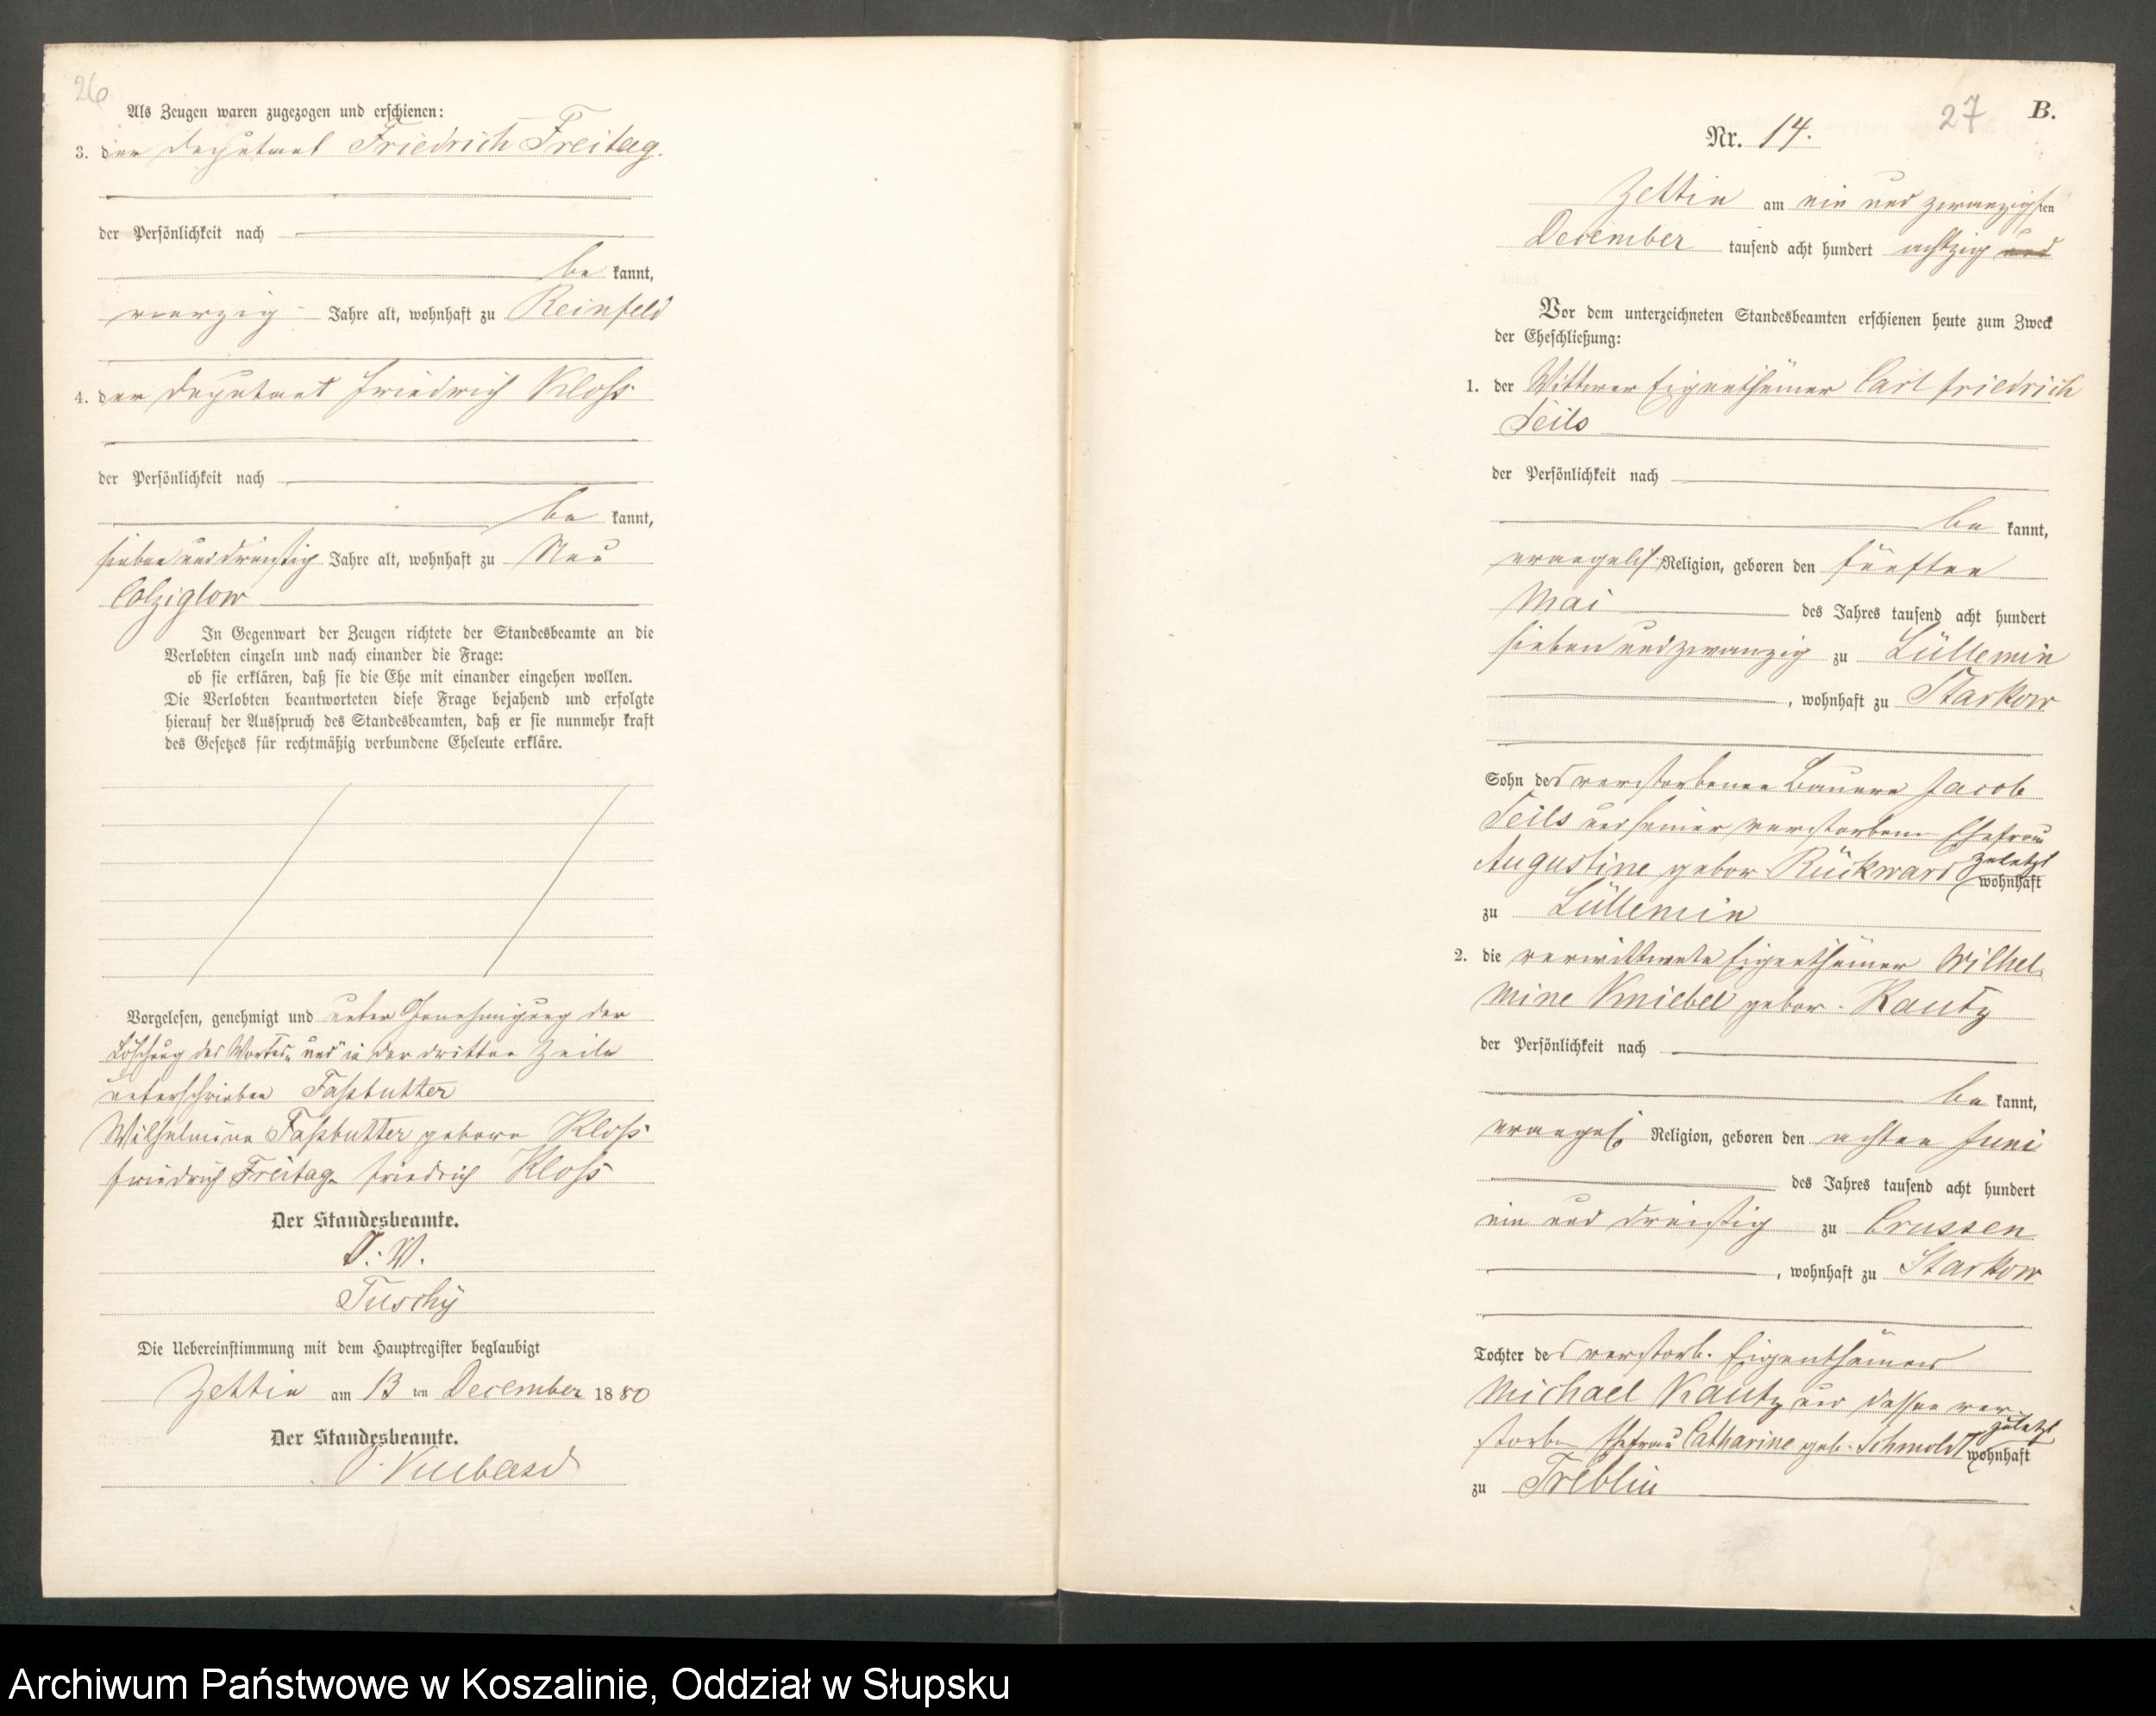 26
Als Zeugen waren zugezogen und erschienen:
3. der Deputant Friedrich Freitag.
der Persönlichkeit nach
be kannt,
vierzig Jahre alt, wohnhaft zu Reinfeld
4. der Deputant Friedrich Kloss
der Persönlichkeit nach
be kannt,
sieben und dreißig Jahre alt, wohnhaft zu Neu
Colziglow
In Gegenwart der Zeugen richtete der Standesbeamte an die
Verlobten einzeln und nach einander die Frage:
ob sie erklären, daß sie die Ehe mit einander eingehen wollen.
Die Verlobten beantworteten diese Frage bejahend und erfolgte
hierauf der Ausspruch des Standesbeamten, daß er sie nunmehr kraft
des Gesetzes für rechtmäßig verbundene Eheleute erkläre.
Vorgelesen, genehmigt und unter Genehmigung der
Löschung des Wortes „und" in der dritten Zeile
unterschrieben Fassbutter
Wilhelmine Fassbutter geborn Kloss
Friedrich Freitag. Friedrich Kloss
Der Standesbeamte.
Tuschy
Die Uebereinstimmung mit dem Hauptregister beglaubigt
Zettin am 13 ten December 1880
Der Standesbeamte.
27 B.
Nr. 14.
Zettin am ein und zwanzigsten
December tausend acht hundert achtzig und
Vor dem unterzeichneten Standesbeamten erschienen heute zum Zweck
der Eheschließung:
1. der Wittwer Eigenthümer Carl Friedrich
Teils
der Persönlichkeit nach
be kannt,
evangelisch Religion, geboren den fünften
Mai des Jahres tausend acht hundert
sieben und zwanzig zu Lüllemin
, wohnhaft zu Starkow
Sohn des verstorbenen Bauern Jacob
Teils und seiner verstorbenen Ehefrau
Augustine gebor. Rückward zuletzt wohnhaft
zu Lüllemin
2. die verwittwete Eigenthümer Wilhel-
mine Kniebel gebor. Kautz
der Persönlichkeit nach
be kannt,
evangel. Religion, geboren den achten Juni
des Jahres tausend acht hundert
ein und dreißig zu Crussen
, wohnhaft zu Starkow
Tochter des verstorb. Eigenthümers
Michael Kautz und dessen ver-
storben Ehefrau Catharine geb. Schmoldt zuletzt wohnhaft
zu Treblin
Archiwum Państwowe w Koszalinie, Oddział w Słupsku